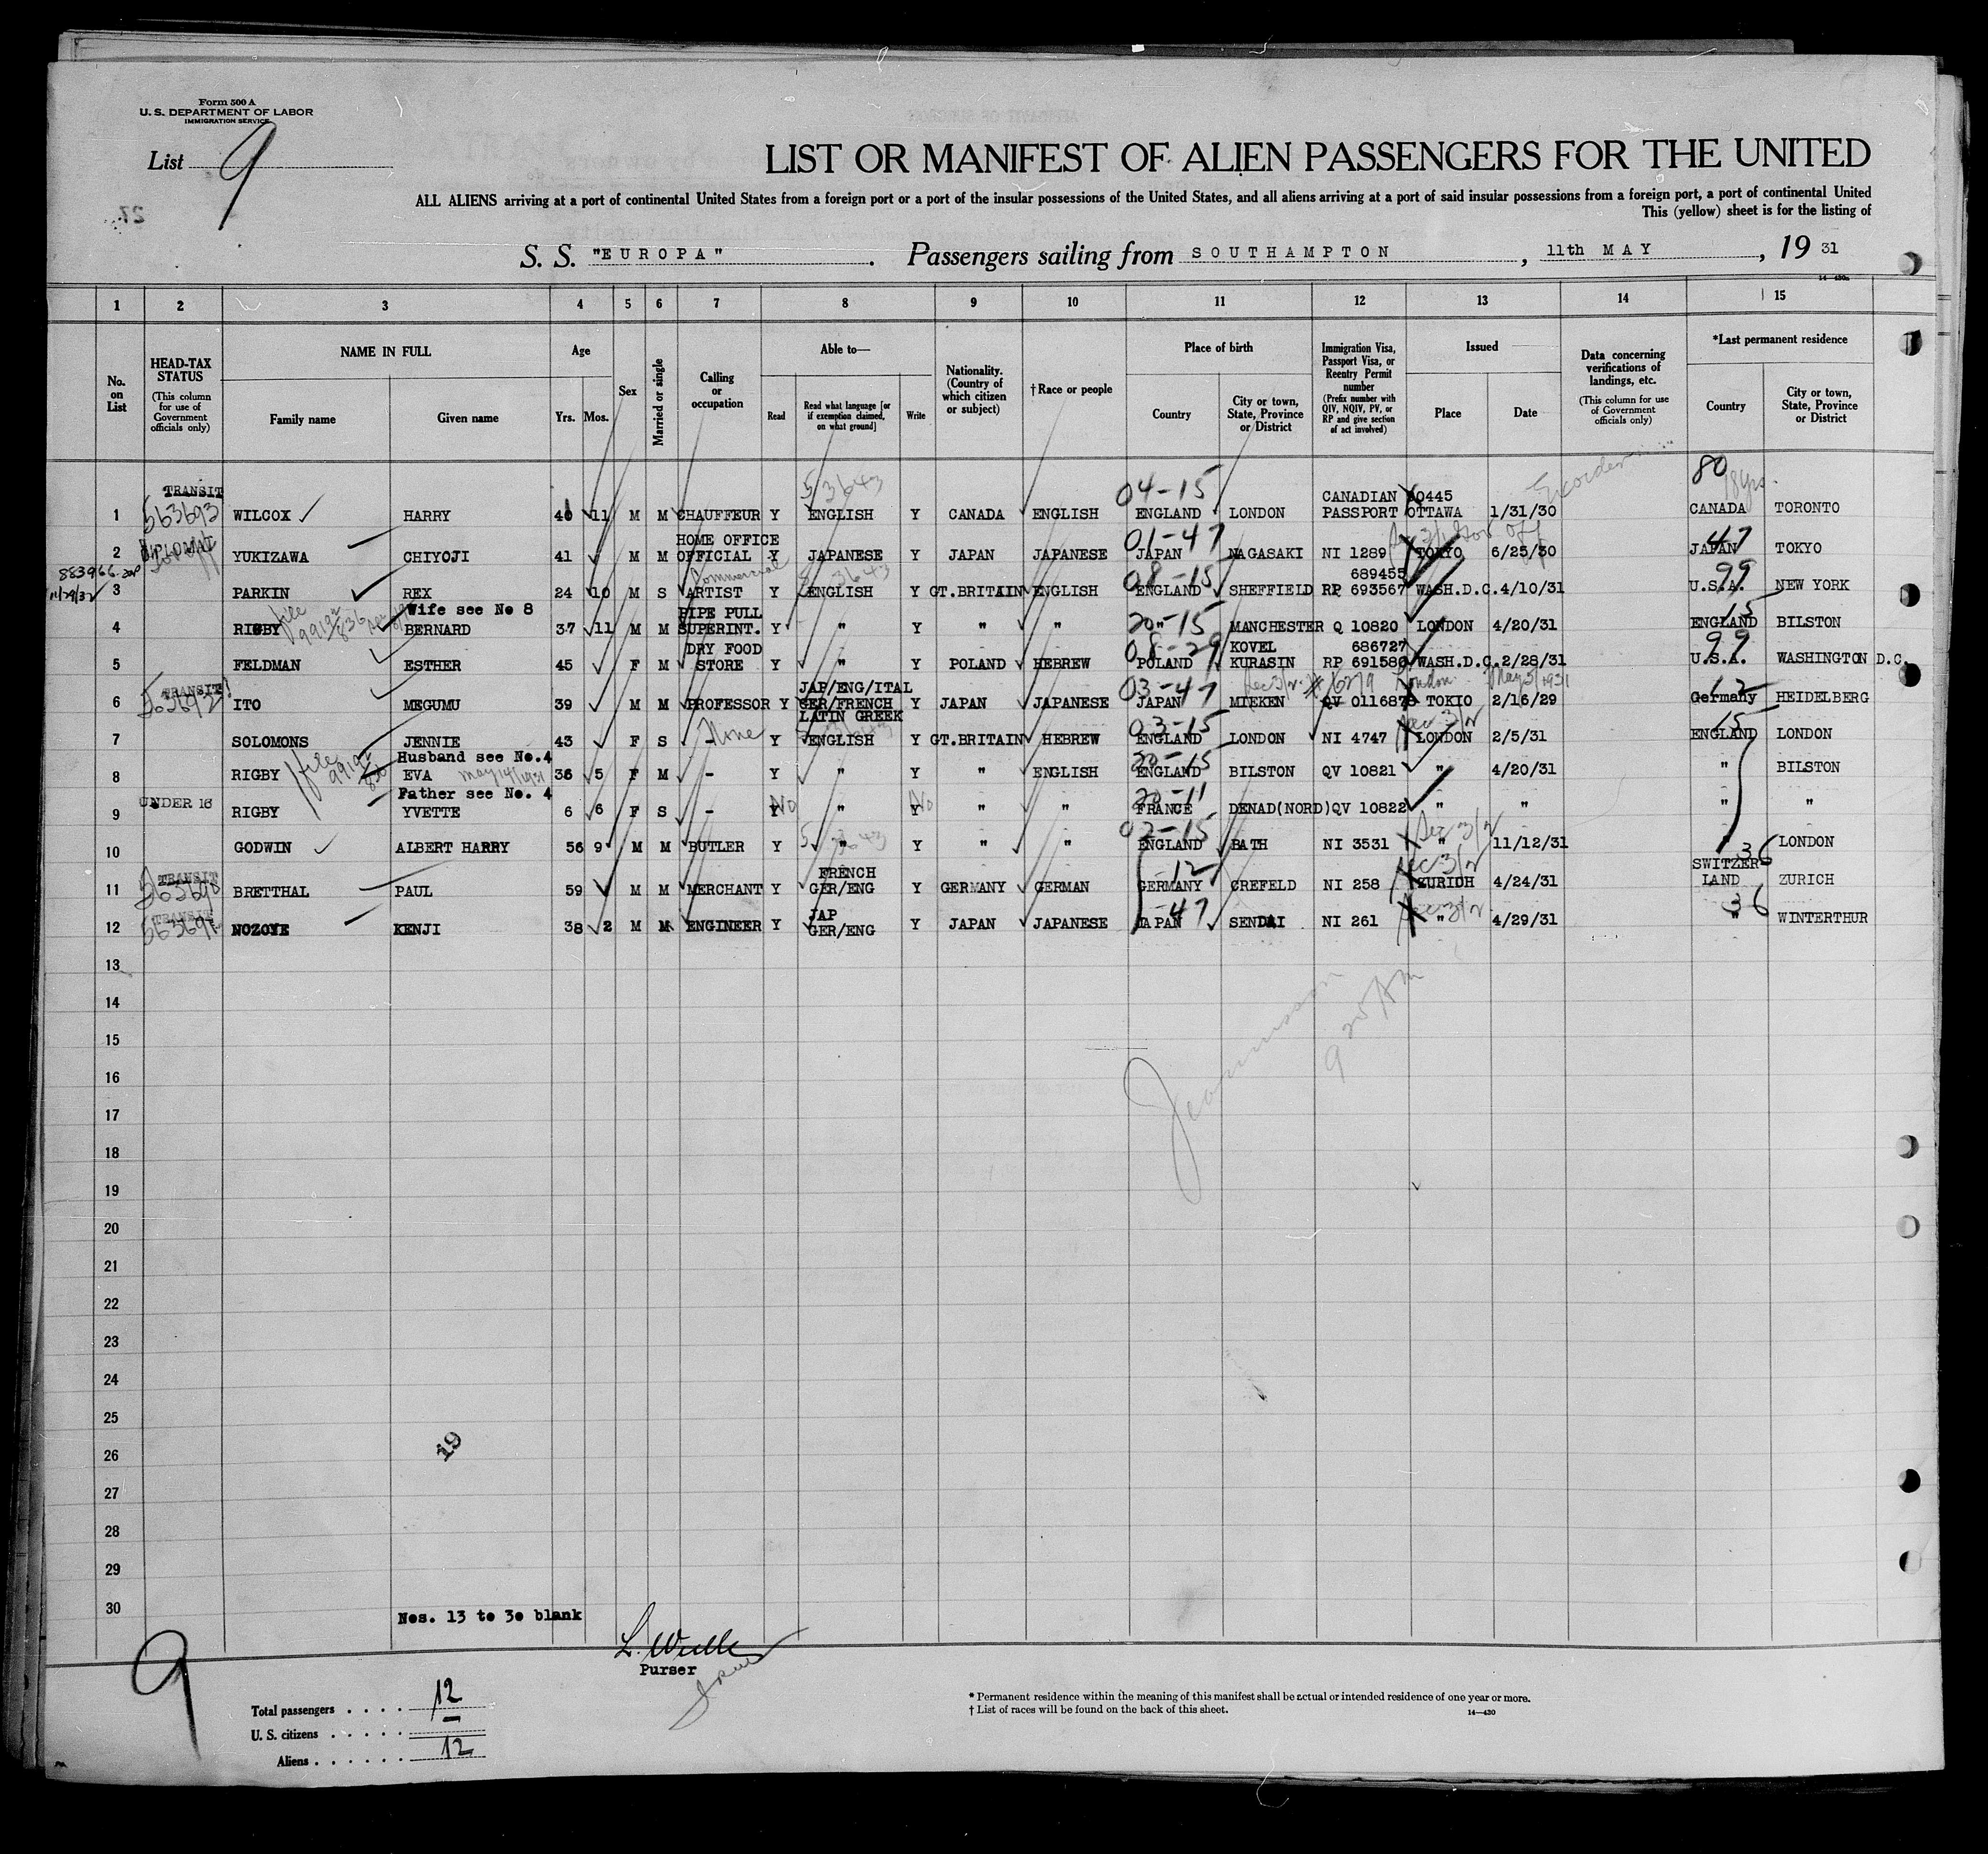 Form 500 A
U. S. DEPARTMENT OF LABOR
IMMIGRATION SERVICE
List 9
LIST OR MANIFEST OF ALIEN PASSENGERS FOR THE UNITED
ALL ALIENS arriving at a port of continental United States from a foreign port or a port of the insular possessions of the United States, and all aliens arriving at a port of said insular possessions from a foreign port, a port of continental United
This (yellow) sheet is for the listing of
27
S. S. "EUROPA". Passengers sailing from SOUTHAMPTON, 11th MAY, 19 31
1 2 3 4 5 6 7 8 9 10 11 12 13 14 15
No. on List
HEAD-TAX STATUS (This column for use of Government officials only)
NAME IN FULL Family name Given name
Age Yrs. Mos.
Sex
Married or single
Calling or occupation
Able to— Read Read what language [or if exemption claimed, on what ground] Write
Nationality. (Country of which citizen or subject)
† Race or people
Place of birth Country City or town, State, Province or District
Immigration Visa, Passport Visa, or Reentry Permit number (Prefix number with QIV, NQIV, PV, or RP and give section of act involved)
Issued Place Date
Data concerning verifications of landings, etc. (This column for use of Government officials only)
*Last permanent residence Country City or town, State, Province or District
TRANSIT 53643 04-15 CANADIAN 80
1 563693 WILCOX HARRY 40 11 M M CHAUFFEUR Y ENGLISH Y CANADA ENGLISH ENGLAND LONDON PASSPORT OTTAWA 1/31/30 CANADA TORONTO
DIPLOMAT HOME OFFICE 01-47 47
2 YUKIZAWA CHIYOJI 41 M M OFFICIAL Y JAPANESE Y JAPAN JAPANESE JAPAN NAGASAKI NI 1289 TOKYO 6/25/30 JAPAN TOKYO
883966 Commercial 08-15 689455 99
3 PARKIN REX 24 10 M S ARTIST Y ENGLISH Y GT.BRITAIN ENGLISH ENGLAND SHEFFIELD RP 693567 WASH.D.C. 4/10/31 U.S.A. NEW YORK
file 99192/836 Wife see No 8 PIPE PULL 20-15 15
4 RIGBY BERNARD 37 11 M M SUPERINT. Y " Y " " " MANCHESTER Q 10820 LONDON 4/20/31 ENGLAND BILSTON
DRY FOOD 08-29 KOVEL 686727 99
5 FELDMAN ESTHER 45 F M STORE Y " Y POLAND HEBREW POLAND KURASIN RP 691586 WASH.D.C. 2/28/31 U.S.A. WASHINGTON D.C.
TRANSIT JAP/ENG/ITAL 03-47 London May 5/1931 12
6 563692 ITO MEGUMU 39 M M PROFESSOR Y GER/FRENCH Y JAPAN JAPANESE JAPAN MIEKEN QV 011687 TOKIO 2/16/29 Germany HEIDELBERG
LATIN GREEK
None 03-15 Sec 3/2 15
7 SOLOMONS JENNIE 43 F S Y ENGLISH Y GT.BRITAIN HEBREW ENGLAND LONDON NI 4747 LONDON 2/5/31 ENGLAND LONDON
file 99192/836 Husband see No.4 20-15
8 RIGBY EVA May 14/1931 36 5 F M - Y " Y " ENGLISH ENGLAND BILSTON QV 10821 " 4/20/31 " BILSTON
UNDER 16 Father see No. 4 No No 20-11
9 RIGBY YVETTE 6 6 F S - Y " Y " " FRANCE DENAD(NORD) QV 10822 " " " "
02-15 Sec 3/2
10 GODWIN ALBERT HARRY 56 9 M M BUTLER Y " Y " " ENGLAND BATH NI 3531 " 11/12/31 " LONDON
TRANSIT FRENCH -12 Sec 3/2 SWITZER- 36
11 563690 BRETTHAL PAUL 59 M M MERCHANT Y GER/ENG Y GERMANY GERMAN GERMANY CREFELD NI 258 ZURICH 4/24/31 LAND ZURICH
TRANSIT JAP -47 Sec 3/2 36
12 563691 NOZOYE KENJI 38 2 M M ENGINEER Y GER/ENG Y JAPAN JAPANESE JAPAN SENDAI NI 261 " 4/29/31 " WINTERTHUR
13
14
15
16
17
18
19
20
21
22
23
24
25
26
27
28
29
30
19
Nos. 13 to 30 blank
Purser
9
Total passengers . . . . 12
U. S. citizens . . . . .
Aliens . . . . . . 12
* Permanent residence within the meaning of this manifest shall be actual or intended residence of one year or more.
† List of races will be found on the back of this sheet.
14—430